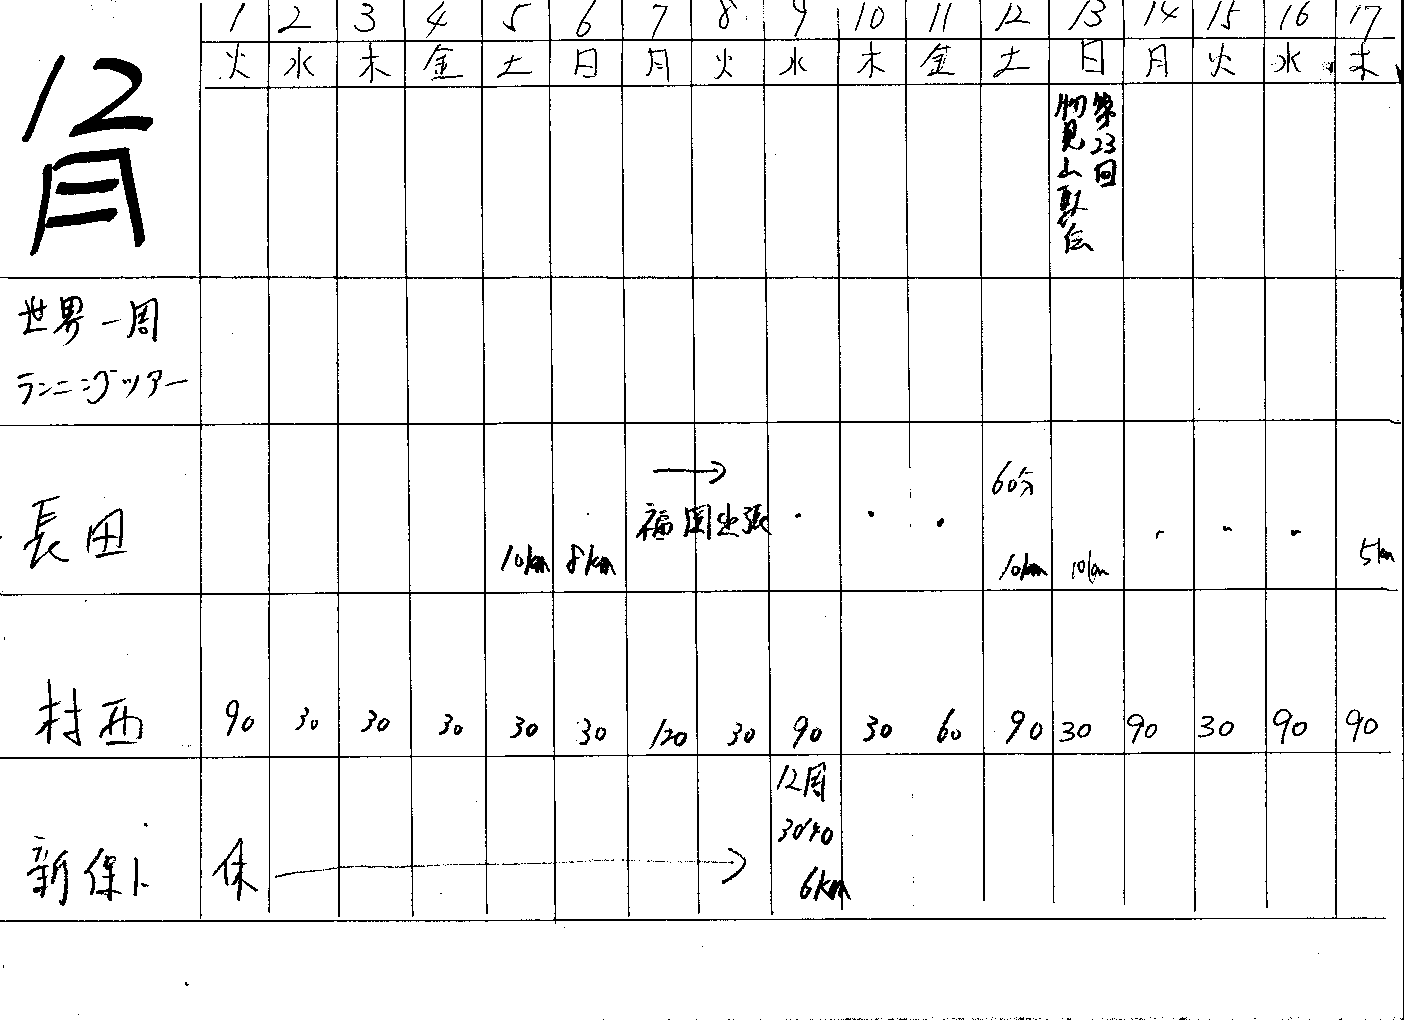 12月
1 2 3 4 5 6 7 8 9 10 11 12 13 14 15 16 17
火 水 木 金 土 日 月 火 水 木 金 土 日 月 火 水 木
第23回
物見山駅伝
世界一周
ランニングツアー
長田
10km 8km
→
福岡出張
60分
10km 10km
5km
村西
90 30 30 30 30 30 120 30 90 30 60 90 30 90 30 90 90
新保ト
休 →
12周
30'40
6km